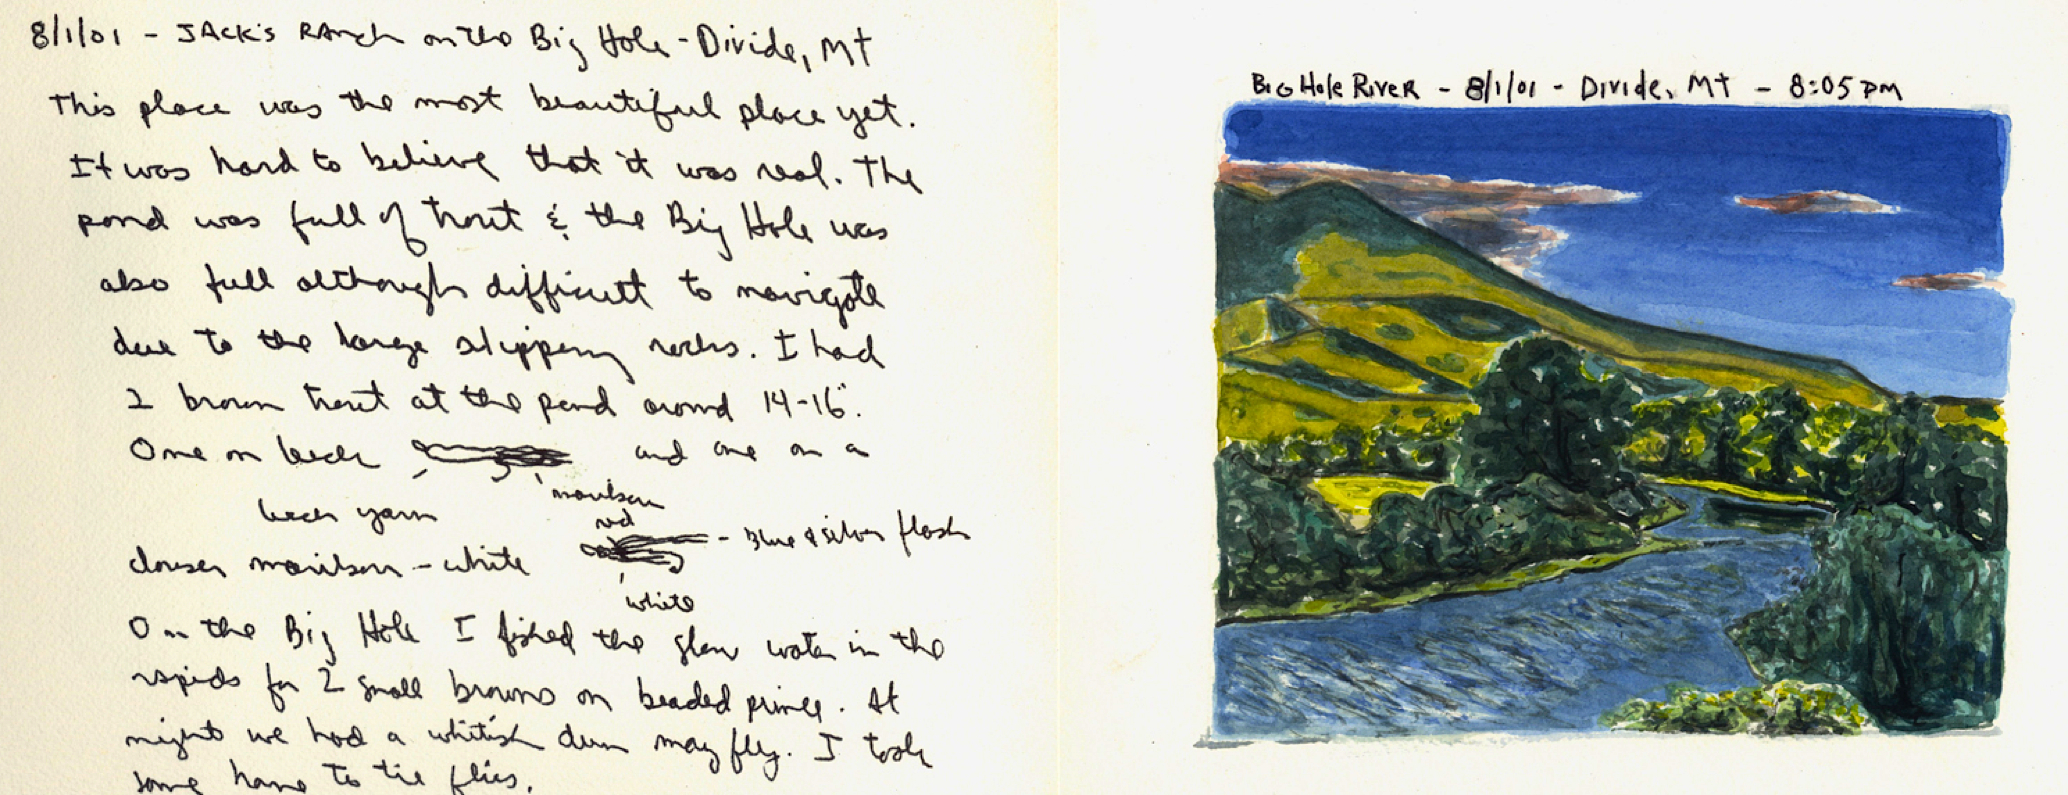 8/1/01 - JAck's RAnch on the Big Hole - Divide, MT
This place was the most beautiful place yet.
It was hard to believe that it was real. The
pond was full of trout & the Big Hole was
also full although difficult to navigate
due to the large slippery rocks. I had
2 brown trout at the pond around 14-16".
One on leech and one on a
leech yarn
maribou
red
clouser maribou - white
- Blue & silver flash
white
On the Big Hole I fished the slow water in the
rapids for 2 small browns on beaded prince. At
night we had a whitish dun may fly. I took
some home to tie flies.
Big Hole River - 8/1/01 - Divide, MT - 8:05 pm